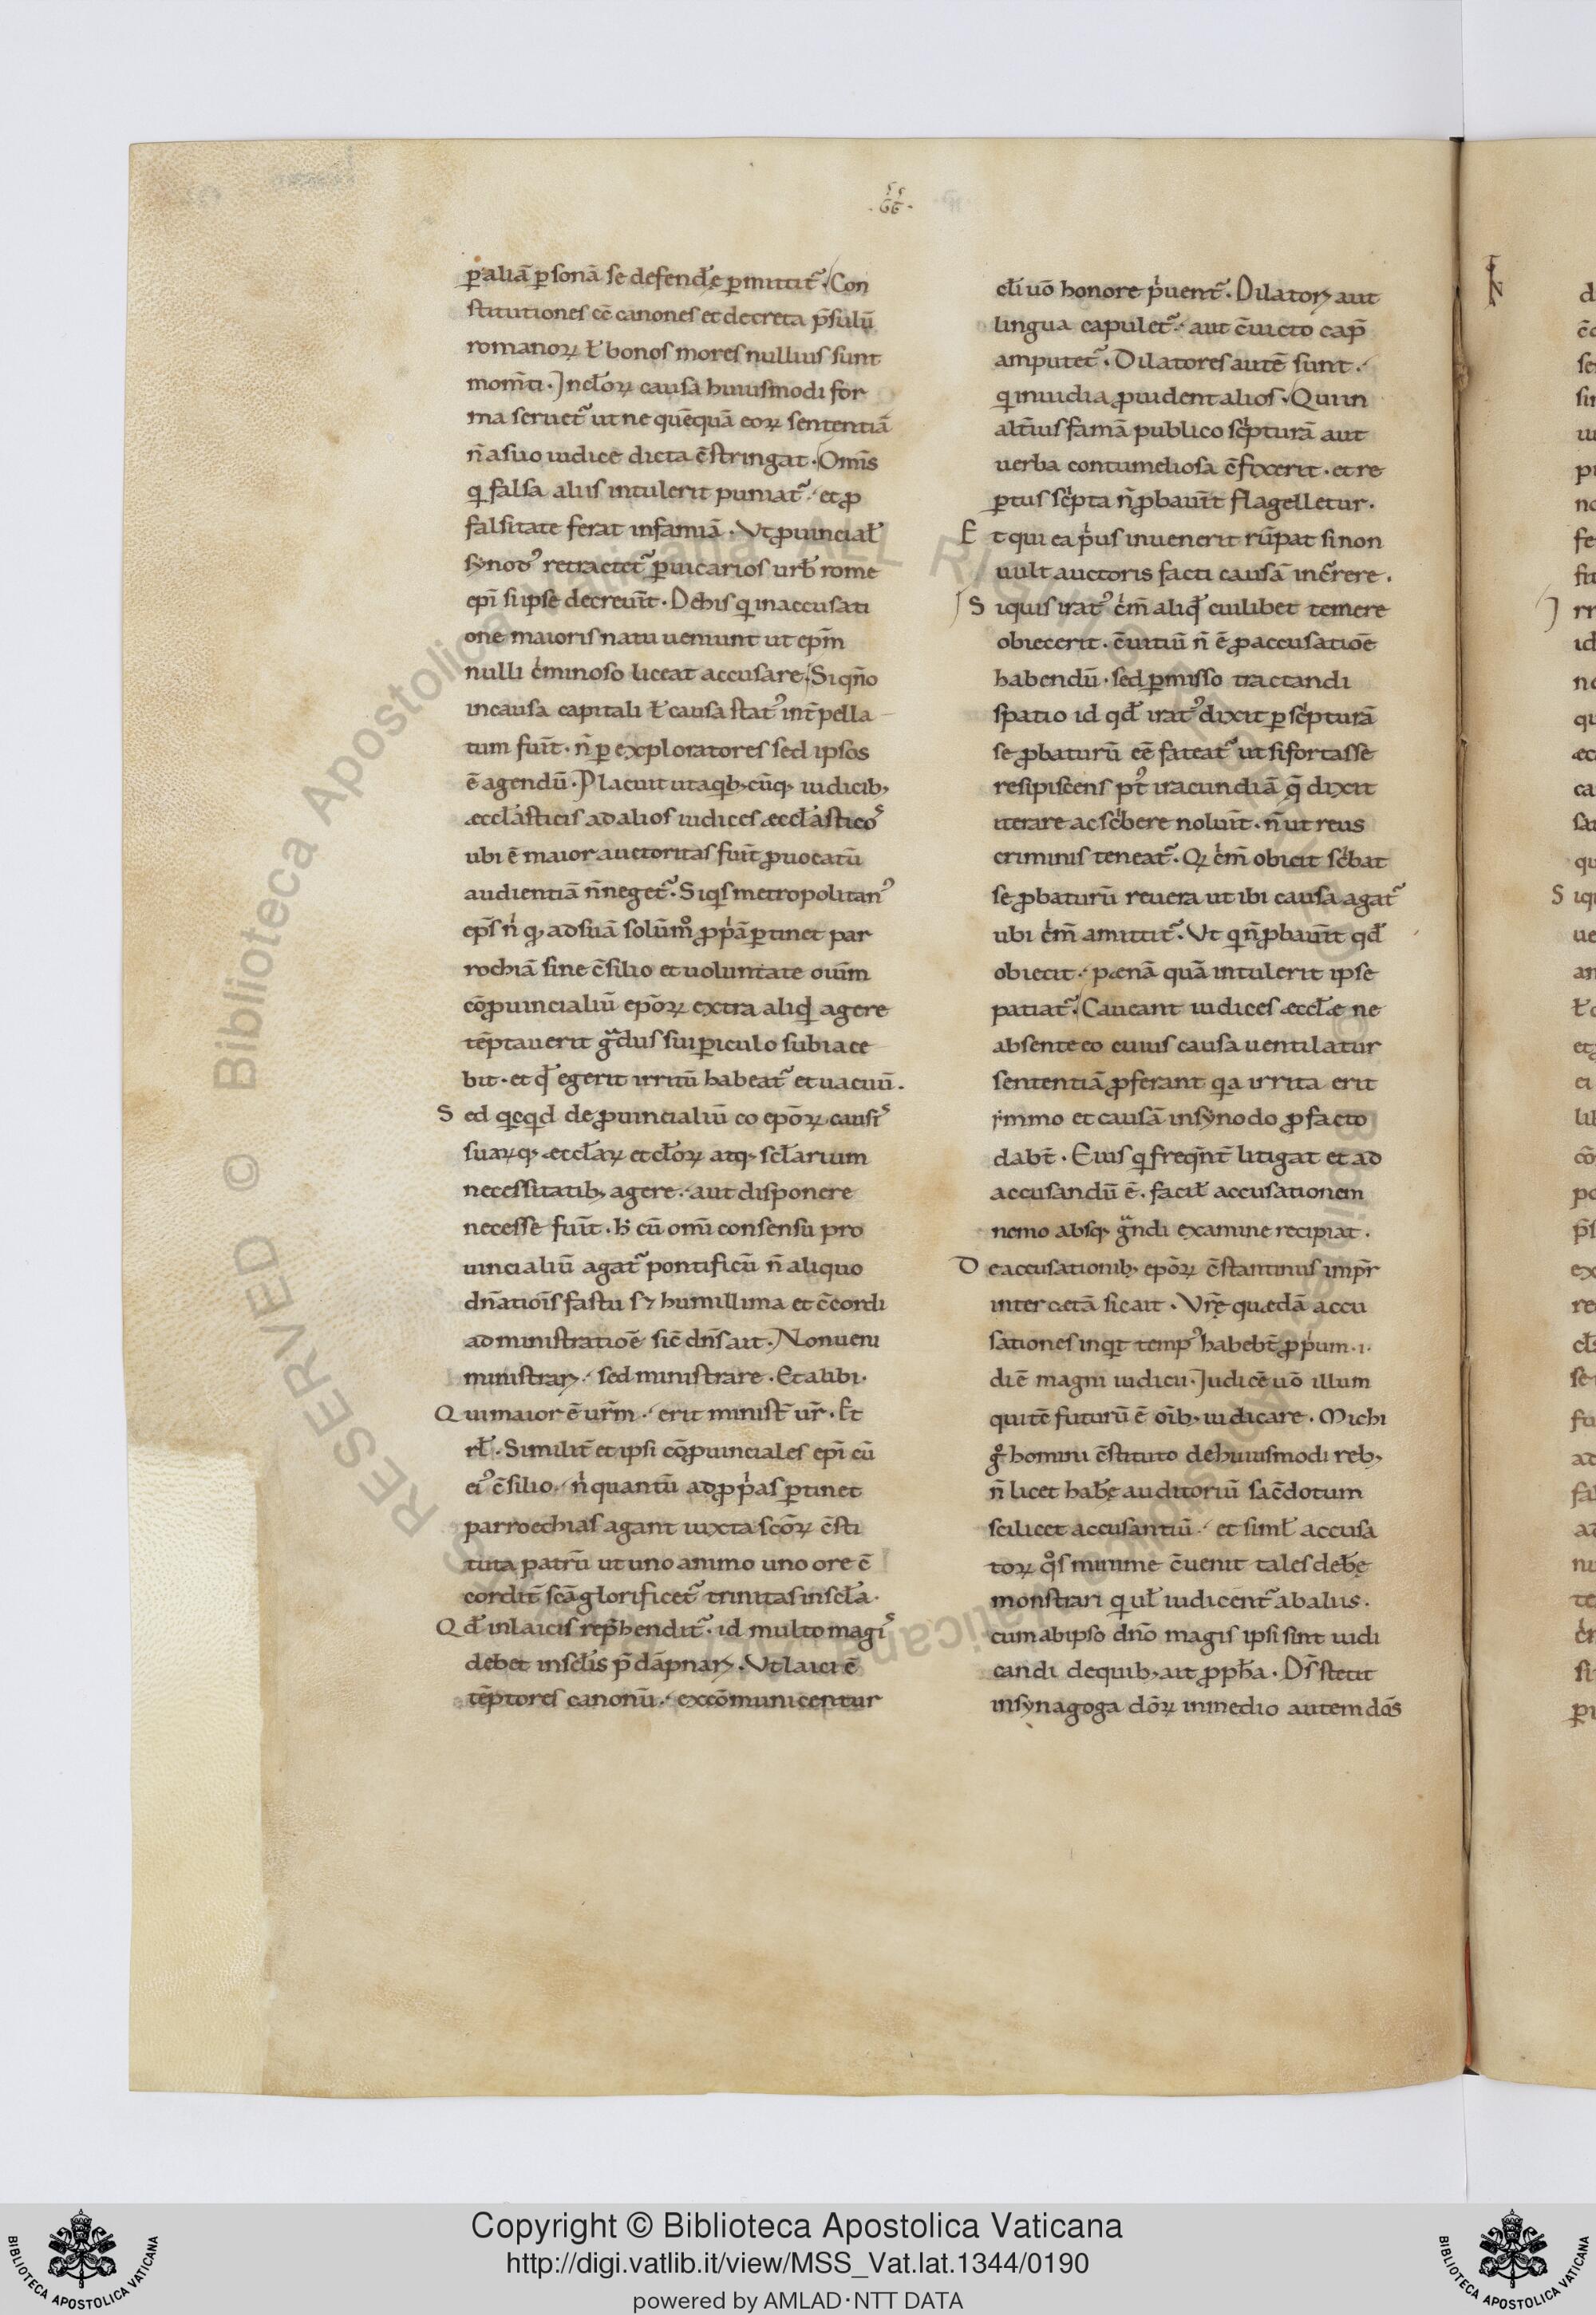 p̱ aliā p̱sonā se defendꝰe p̱mittit᷑. Con
stitutiones cc̄ canones et decreta p̄sulū
romanoꝝ ł bonos mores nullius sunt
mom̄ti. In cl̄oꝝ causa huiusmodi for
ma seruet᷑ ut ne quēquā eoꝝ sententiā
n̄ a suo iudice dicta c̄stringat. Om̄s
q falsa aliis intulerit puniat᷑. et ꝓ
falsitate ferat infamiā. Vt ꝓuincial̄
synodꝰ retractet᷑ p̱ uicarios urb̄ rome
ep̄i si ipse decreuīt. De his q in accusati
one maioris natu ueniunt ut ep̄m
nulli cͥminoso liceat accusare. Si qn̄o
in causa capitali ł causa statꝰ int̄pella
tum fuīt. n̄ p̱ exploratores sed ipsos
ē agendū. Placuit ut a qb; cūq; iudicib;
æccl̄asticis ad alios iudices æccl̄asticos
ubi ē maior auctoritas fuīt ꝓuocatū
audientiā n̄ neget᷑. Siqͥs metropolitanꝰ
ep̄s nͥ q, ad suā solūm̊ ꝓpͥā p̱tinet par
rochiā sine c̄silio et uoluntate ouīm
cōꝓuincialiū ep̄oꝝ extra aliqͥd agere
tēptauerit gᷓdus sui p̱iculo subiace
bit. et qd̄ egerit irritū habeat᷑ et uacuū.
Sed qcqd de ꝓuincialiū co ep̄oꝝ causis
suaꝝq; æccl̄aꝝ et cl̄oꝝ atq; scl̄arium
necessitatib; agere. aut disponere
necesse fuīt. h̄ cū om̄i consensu pro
uincialiū agat᷑ pontificū n̄ aliquo
dn̄atiōis fastu s; humillima et c̄cordi
administratiōe sic̄ dn̄s ait. Non ueni
ministrari. sed ministrare. Et alibi.
Qui maior ē ur̄m. erit minist̄ ur̄. Et
rł. Similit̄ et ipsi cōꝓuinciales ep̄i cū
eiꝰ c̄silio. nͥ quantū ad ꝓpͥas p̱tinet
parroechias agant iuxta sc̄oꝝ c̄sti
tuta patrū ut uno animo uno ore c̄
cordit̄ sc̄a glorificet᷑ trinitas in scl̄a.
Qd̄ in laicis rep̄hendit᷑. id multo magis
debet in scl̄is p̄dāpnari. Vt laici c̄
tēptores canonū. excōmunicentur
cl̄i uō honore pͥuent᷑. Dilatori aut
lingua capulet᷑. aut c̄uicto cap̄
amputet᷑. Dilatores autē sunt.
q inuidia ꝓuident alios. Qui in
alt̄ius famā publico scͥpturā aut
uerba contumeliosa c̄fixerit. et re
p̱tus scͥpta n̄ ꝓbauīt flagelletur.
Et qui ea pͥus inuenerit rūpat si non
uult auctoris facti causā incͥrere.
Si quis iratꝰ cͥm̄ aliqd̄ cuilibet temere
obiecerit. c̄uitiū n̄ ē ꝓ accusatiōe
habendū. sed p̱misso tractandi
spatio id qd̄ iratꝰ dixit p̱ scͥpturā
se ꝓbaturū eē fateat᷑ ut si fortasse
resipiscens pt̄ iracundiā q̄ dixit
iterare ac scͥbere noluīt. n̄ ut reus
criminis teneat᷑. Qꝝ cͥm̄ obicit scͥbat
se ꝓbaturū reuera ut ibi causa agat᷑
ubi cͥm̄ amittit᷑. Vt q n̄ ꝓbauīt qd̄
obiecit. pœnā quā intulerit ipse
patiat᷑. Caueant iudices æccl̄æ ne
absente eo cuius causa uentilatur
sententiā ꝓferant qa irrita erit
immo et causā in synodo ꝓ facto
dabt̄. Eius q freqn̄t̄ litigat et ad
accusandū ē. facil̄ accusationem
nemo absq; gᷓndi examine recipiat.
De accusationib; ep̄oꝝ c̄stantinus imp̄r
inter cætā sic ait. Vr̄ę quædā accu
sationes inqͥt tempꝰ habebt̄ ꝓpͥum. i.
diē magni iudicii. Iudicē uō illum
qui tē futurū ē oīb; iudicare. Michi
g̊ homini c̄stituto de huiusmodi reb;
n̄ licet hab̄e auditoriū sac̄dotum
scilicet accusantiū. et simł accusa
toꝝ qo̊s minime c̄uenit tales deb̄e
monstrari q uł iudicent᷑ ab aliis.
cum ab ipso dn̄o magis ipsi sint iudi
candi de quib; ait ꝓph̄a. Ds̄ stetit
in synagoga dōꝝ in medio autem dōs
Copyright © Biblioteca Apostolica Vaticana
http://digi.vatlib.it/view/MSS_Vat.lat.1344/0190
powered by AMLAD·NTT DATA